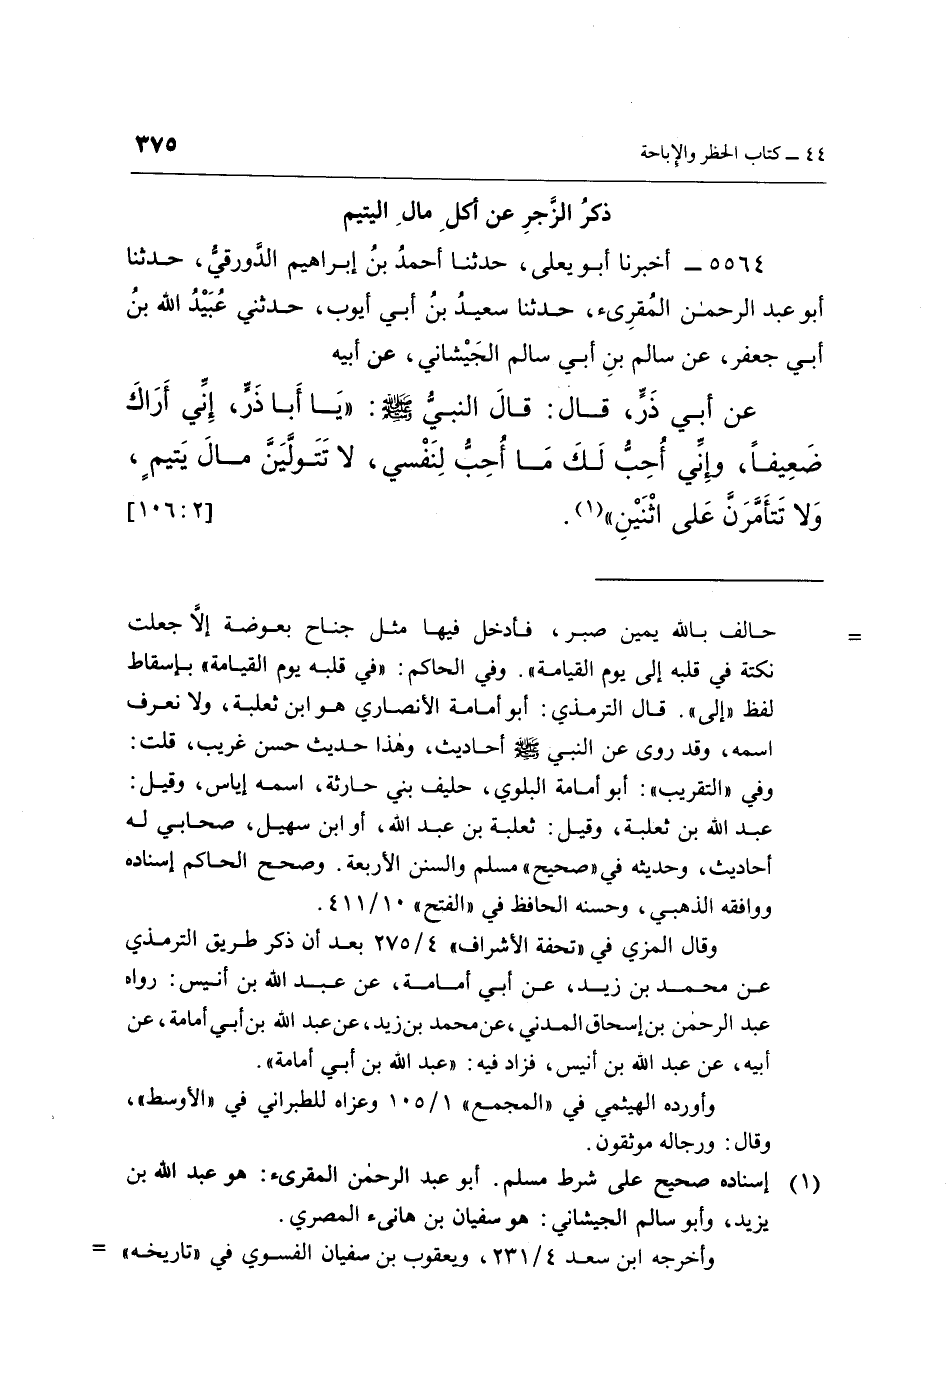 ٤٤ ـ كتاب الحظر والإباحة
٣٧٥
ذكرُ الزَّجرِ عن أكلِ مالِ اليتيم
٥٥٦٤ ـ أخبرنا أبو يعلى، حدثنا أحمدُ بنُ إبراهيم الدَّورقيُّ، حدثنا
أبو عبد الرحمٰن المُقرىء، حدثنا سعيدُ بنُ أبي أيوب، حدثني عُبَيْدُ الله بنُ
أبي جعفر، عن سالم بنِ أبي سالم الجَيْشاني، عن أبيه
عن أبي ذَرٍّ، قال: قالَ النبيُّ ﷺ: «يَا أَبا ذَرٍّ، إنِّي أَرَاكَ
ضَعِيفاً، وإنِّي أُحِبُّ لَكَ مَا أُحِبُّ لِنَفْسي، لا تَتَولَّيَنَّ مالَ يَتيمٍ،
وَلا تَتَأَمَّرَنَّ عَلى اثْنَيْنِ»(١).
[٢: ١٠٦]
= حالف بالله يمين صبر، فأدخل فيها مثل جناح بعوضة إلَّا جعلت
نكتة في قلبه إلى يوم القيامة». وفي الحاكم: «في قلبه يوم القيامة» بإسقاط
لفظ «إلى». قال الترمذي: أبو أمامة الأنصاري هو ابن ثعلبة، ولا نعرف
اسمه، وقد روى عن النبي ﷺ أحاديث، وهٰذا حديث حسن غريب، قلت:
وفي «التقريب»: أبو أمامة البلوي، حليف بني حارثة، اسمه إياس، وقيل:
عبد الله بن ثعلبة، وقيل: ثعلبة بن عبد الله، أو ابن سهيل، صحابي له
أحاديث، وحديثه في «صحيح» مسلم والسنن الأربعة. وصحح الحاكم إسناده
ووافقه الذهبي، وحسنه الحافظ في «الفتح» ٤١١/١٠.
وقال المزي في «تحفة الأشراف» ٢٧٥/٤ بعد أن ذكر طريق الترمذي
عن محمد بن زيد، عن أبي أمامة، عن عبد الله بن أنيس: رواه
عبد الرحمٰن بن إسحاق المدني، عن محمد بن زيد، عن عبد الله بن أبي أمامة، عن
أبيه، عن عبد الله بن أنيس، فزاد فيه: «عبد الله بن أبي أمامة».
وأورده الهيثمي في «المجمع» ١٠٥/١ وعزاه للطبراني في «الأوسط»،
وقال: ورجاله موثقون.
(١) إسناده صحيح على شرط مسلم. أبو عبد الرحمٰن المقرىء: هو عبد الله بن
يزيد، وأبو سالم الجيشاني: هو سفيان بن هانىء المصري.
وأخرجه ابن سعد ٢٣١/٤، ويعقوب بن سفيان الفسوي في «تاريخه» =